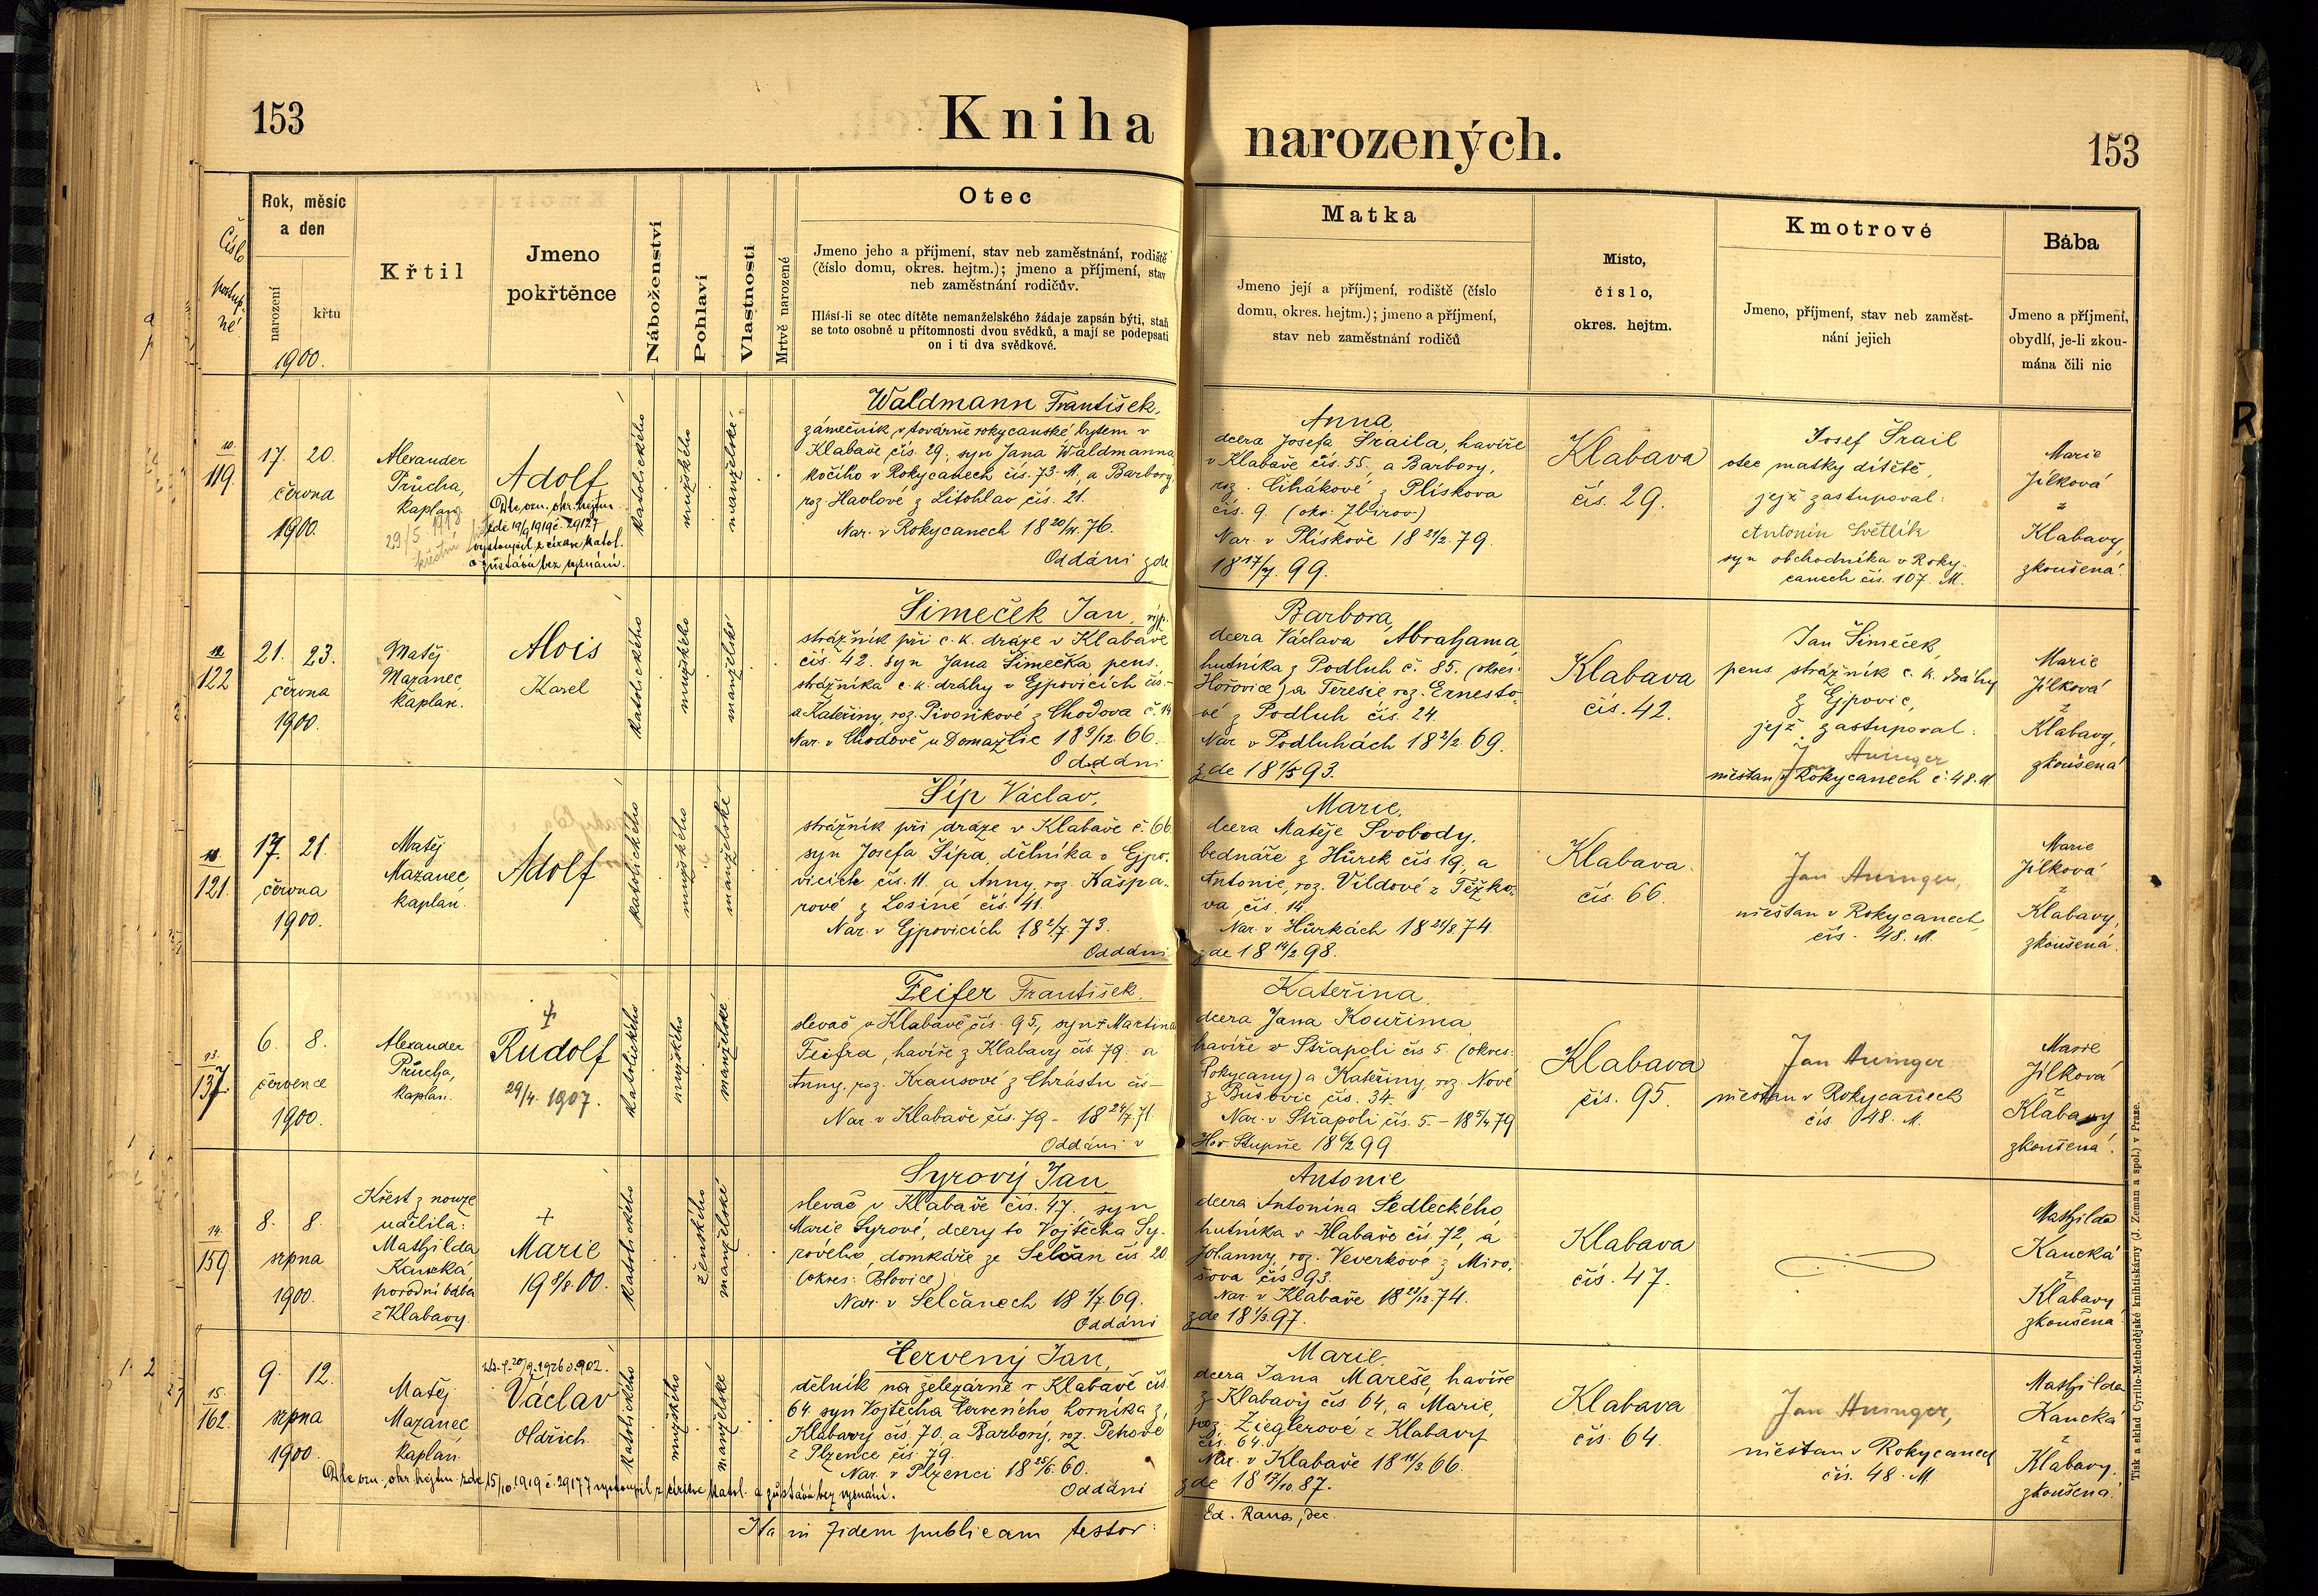 153
Kniha narozených.
153
Číslo postup. né
Rok, měsíc a den
narození
křtu
1900.
Křtil
Jmeno pokřtěnce
Náboženství
Pohlaví
Vlastnosti
Mrtvě narozené
Otec
Jmeno jeho a příjmení, stav neb zaměstnání, rodiště
(číslo domu, okres. hejtm.); jmeno a příjmení, stav
neb zaměstnání rodičův.
Hlásí-li se otec dítěte nemanželského žádaje zapsán býti, staň
se toto osobně u přítomnosti dvou svědků, a mají se podepsati
on i ti dva svědkové.
Matka
Jmeno její a příjmení, rodiště (číslo
domu, okres. hejtm.); jmeno a příjmení,
stav neb zaměstnání rodičů
Místo,
číslo,
okres. hejtm.
Kmotrové
Jmeno, příjmení, stav neb zaměst-
nání jejich
Bába
Jmeno a příjmení,
obydlí, je-li zkou-
mána čili nic
10.
119.
17. 20.
června
1900.
Alexander
Průcha,
kaplan
29/5. 1948
křestní
Adolf
Dle ozn. okr. hejtm.
zde 19/9 1919 č. 29127
vystoupil z církve katol.
a zůstává bez vyznání.
katolického
mužského
manželské
Waldmann František,
zámečník v továrně rokycanské bytem v
Klabavě čís. 29; syn Jana Waldmanna
kočího v Rokycanech čís. 73. M, a Barbory,
roz. Havlové z Litohlav čís. 21.
Nar. v Rokycanech 18 20/11. 76.
Oddáni zde
Anna,
dcera Josefa Šraila, havíře
v Klabavě čís. 55, a Barbory,
roz. Cihákové z Plískova
čís. 9. (okr. Zbirov.)
Nar. v Plískově 18 21/2. 79.
18 17/7. 99.
Klabava
čís. 29.
Josef Šrail
otec matky dítěte,
jejž zastupoval:
Antonín Světlík
syn obchodníka v Roky-
canech čís. 107. M.
Marie
Jílková
z
Klabavy,
zkoušená.
122
21. 23.
června
1900.
Matěj
Mazanec,
kaplan.
Alois
Karel
katolického
mužského
manželské
Šimeček Jan, výp.
strážník při c. k. dráze v Klabavě
čís. 42. syn Jana Šimečka pens.
strážníka c. k. dráhy v Ejpovicích čís. –
a Kateřiny, roz. Pivoňkové z Chodova č. 14
Nar. v Chodově u Domažlic 18 9/12. 66.
Oddáni
Barbora,
dcera Václava Abrahama
hutníka z Podluh č. 85. (okres:
Hořovice) a Teresie roz. Ernesto-
vé z Podluh čís. 24.
Nar. v Podluhách 18 2/2. 69.
zde 18 1/5 93.
Klabava
čís. 42.
Jan Šimeček,
pens strážník c. k. dráhy
z Ejpovic,
jejž zastupoval:
Jan Auinger
měšťan v Rokycanech č. 48. M.
Marie
Jílková
z
Klabavy,
zkoušená
121.
17. 21.
června
1900.
Matěj
Mazanec
kaplan.
Adolf
katolického
mužského
manželské
Šíp Václav,
strážník při dráze v Klabavě č. 66.
syn Josefa Šípa, dělníka v Ejpo-
vicích čís. 11. a Anny, roz. Kašpa-
rové z Losiné čís. 41.
Nar. v Ejpovicích 18 2/7. 73.
Oddáni
Marie,
dcera Matěje Svobody,
bednáře z Hůrek čís 19, a
Antonie, roz. Vildové z Těžko-
va čís. 14.
Nar. v Hůrkách 18 21/8. 74.
zde 18 14/2. 98.
Klabava
čís. 66.
Jan Auinger,
měšťan v Rokycanech
čís. 48. M.
Marie
Jílková
z
Klabavy,
zkoušená.
13.
137.
6. 8.
července
1900.
Alexander
Průcha,
kaplan.
†
Rudolf
29/4. 1907.
katolického
mužského
manželské
Feifer František.
slevač v Klabavě čís. 95, syn † Martina
Feifra, havíře z Klabavy čís. 79. a
Anny, roz. Krausové z Chrástu čís –
Nar. v Klabavě čís. 79 – 18 24/7. 71.
Oddáni v
Kateřina,
dcera Jana Kouřima,
havíře v Střapoli čís 5. (okres:
Rokycany) a Kateřiny, roz. Nové
z Bušovic čís. 34.
Nar. v Střapoli čís. 5. – 18 5/4 79
Hor. Stupně 18 6/2 99
Klabava
čís. 95.
Jan Auinger
měšťan v Rokycanech
čís. 48. M.
Marie
Jílková
z
Klabavy
zkoušená.
14.
159
8. 8.
srpna
1900.
Křest z nouze
udělila:
Mathilda
Kancká
porodní bába
z Klabavy
†
Marie
19 8/8. 00.
katolického
ženského
manželské
Syrový Jan,
slevač v Klabavě čís. 47. syn
Marie Syrové, dcery to Vojtěcha Sy-
rového, domkáře ze Selčan čís 20
(okres: Blovice)
Nar. v Selčanech 18 1/7. 69.
Oddáni
Antonie
dcera Antonína Sedleckého
hutníka v Klabavě čís. 72, a
Johanny, roz. Veverkové z Miro-
šova čís. 93.
Nar. v Klabavě 18 29/12. 74.
zde 18 1/3. 97.
Klabava
čís. 47.
Mathilda
Kancká
z
Klabavy
zkoušená
15.
162.
9. 12.
srpna
1900.
Matěj
Mazanec
kaplan.
Václav
Oldřich.
katolického
mužského
manželské
Dle ozn. okr. hejtm. zde 15/10. 1919 č. 29177 vystoupil z církve katol. a zůstává bez vyznání.
Červený Jan,
dělník na železárně v Klabavě čís
64. syn Vojtěcha Červeného, horníka z
Klabavy čís. 70. a Barbory, roz. Pehové
z Plzence čís. 79.
Nar. v Plzenci 18 25/6. 60.
Oddáni
Marie,
dcera Jana Mareše, havíře
z Klabavy čís. 64, a Marie,
roz. Zieglerové z Klabavy
čís. 64.
Nar. v Klabavě 18 11/3. 66.
zde 18 17/10 87.
Klabava
čís. 64.
Jan Auinger,
měšťan v Rokycanech
čís. 48. M
Mathilda
Kancká
z
Klabavy,
zkoušená.
In fidem publicam testor:
Ed. Raus, dec.
Tisk a sklad Cyrillo-Methodějské knihtiskárny (J. Zeman a spol.) v Praze.
R